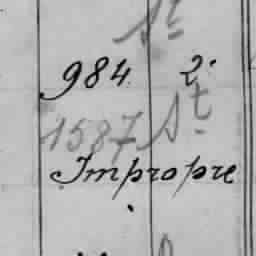 St
984. 2.
1587 St
Impropre